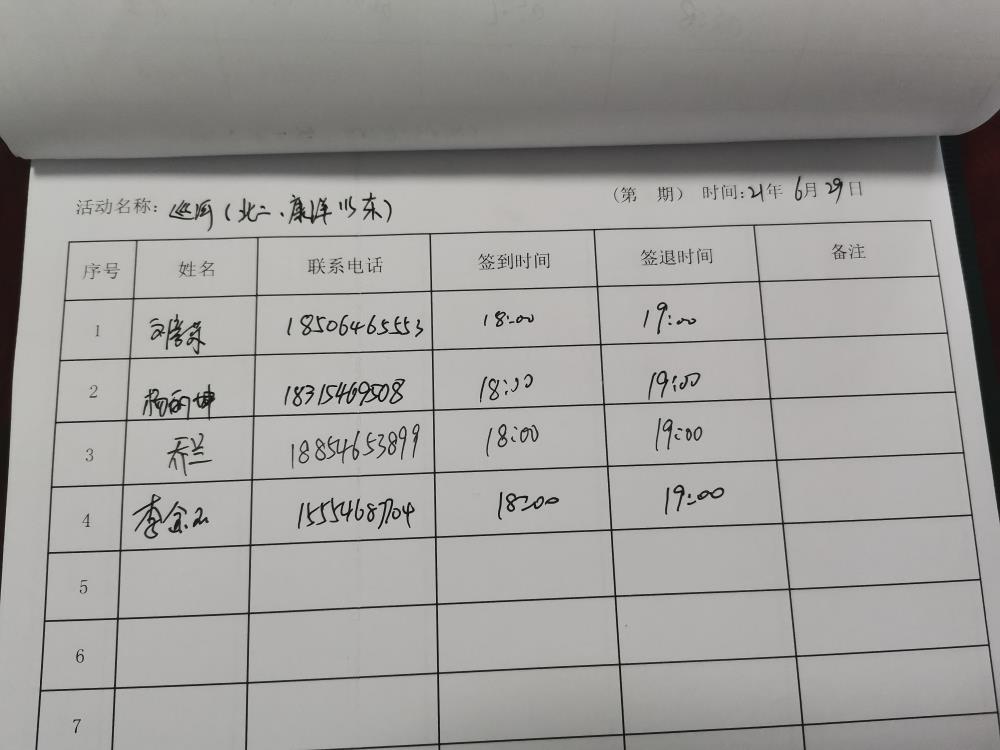 活动名称: 巡河(北二、康洋以东) (第 期) 时间:21年 6月29日
序号 姓名 联系电话 签到时间 签退时间 备注
1 18506465553 18:00 19:00
2 杨丽坤 18315469508 18:00 19:00
3 乔兰 18854653899 18:00 19:00
4 李金玉 15554687704 18:00 19:00
5
6
7